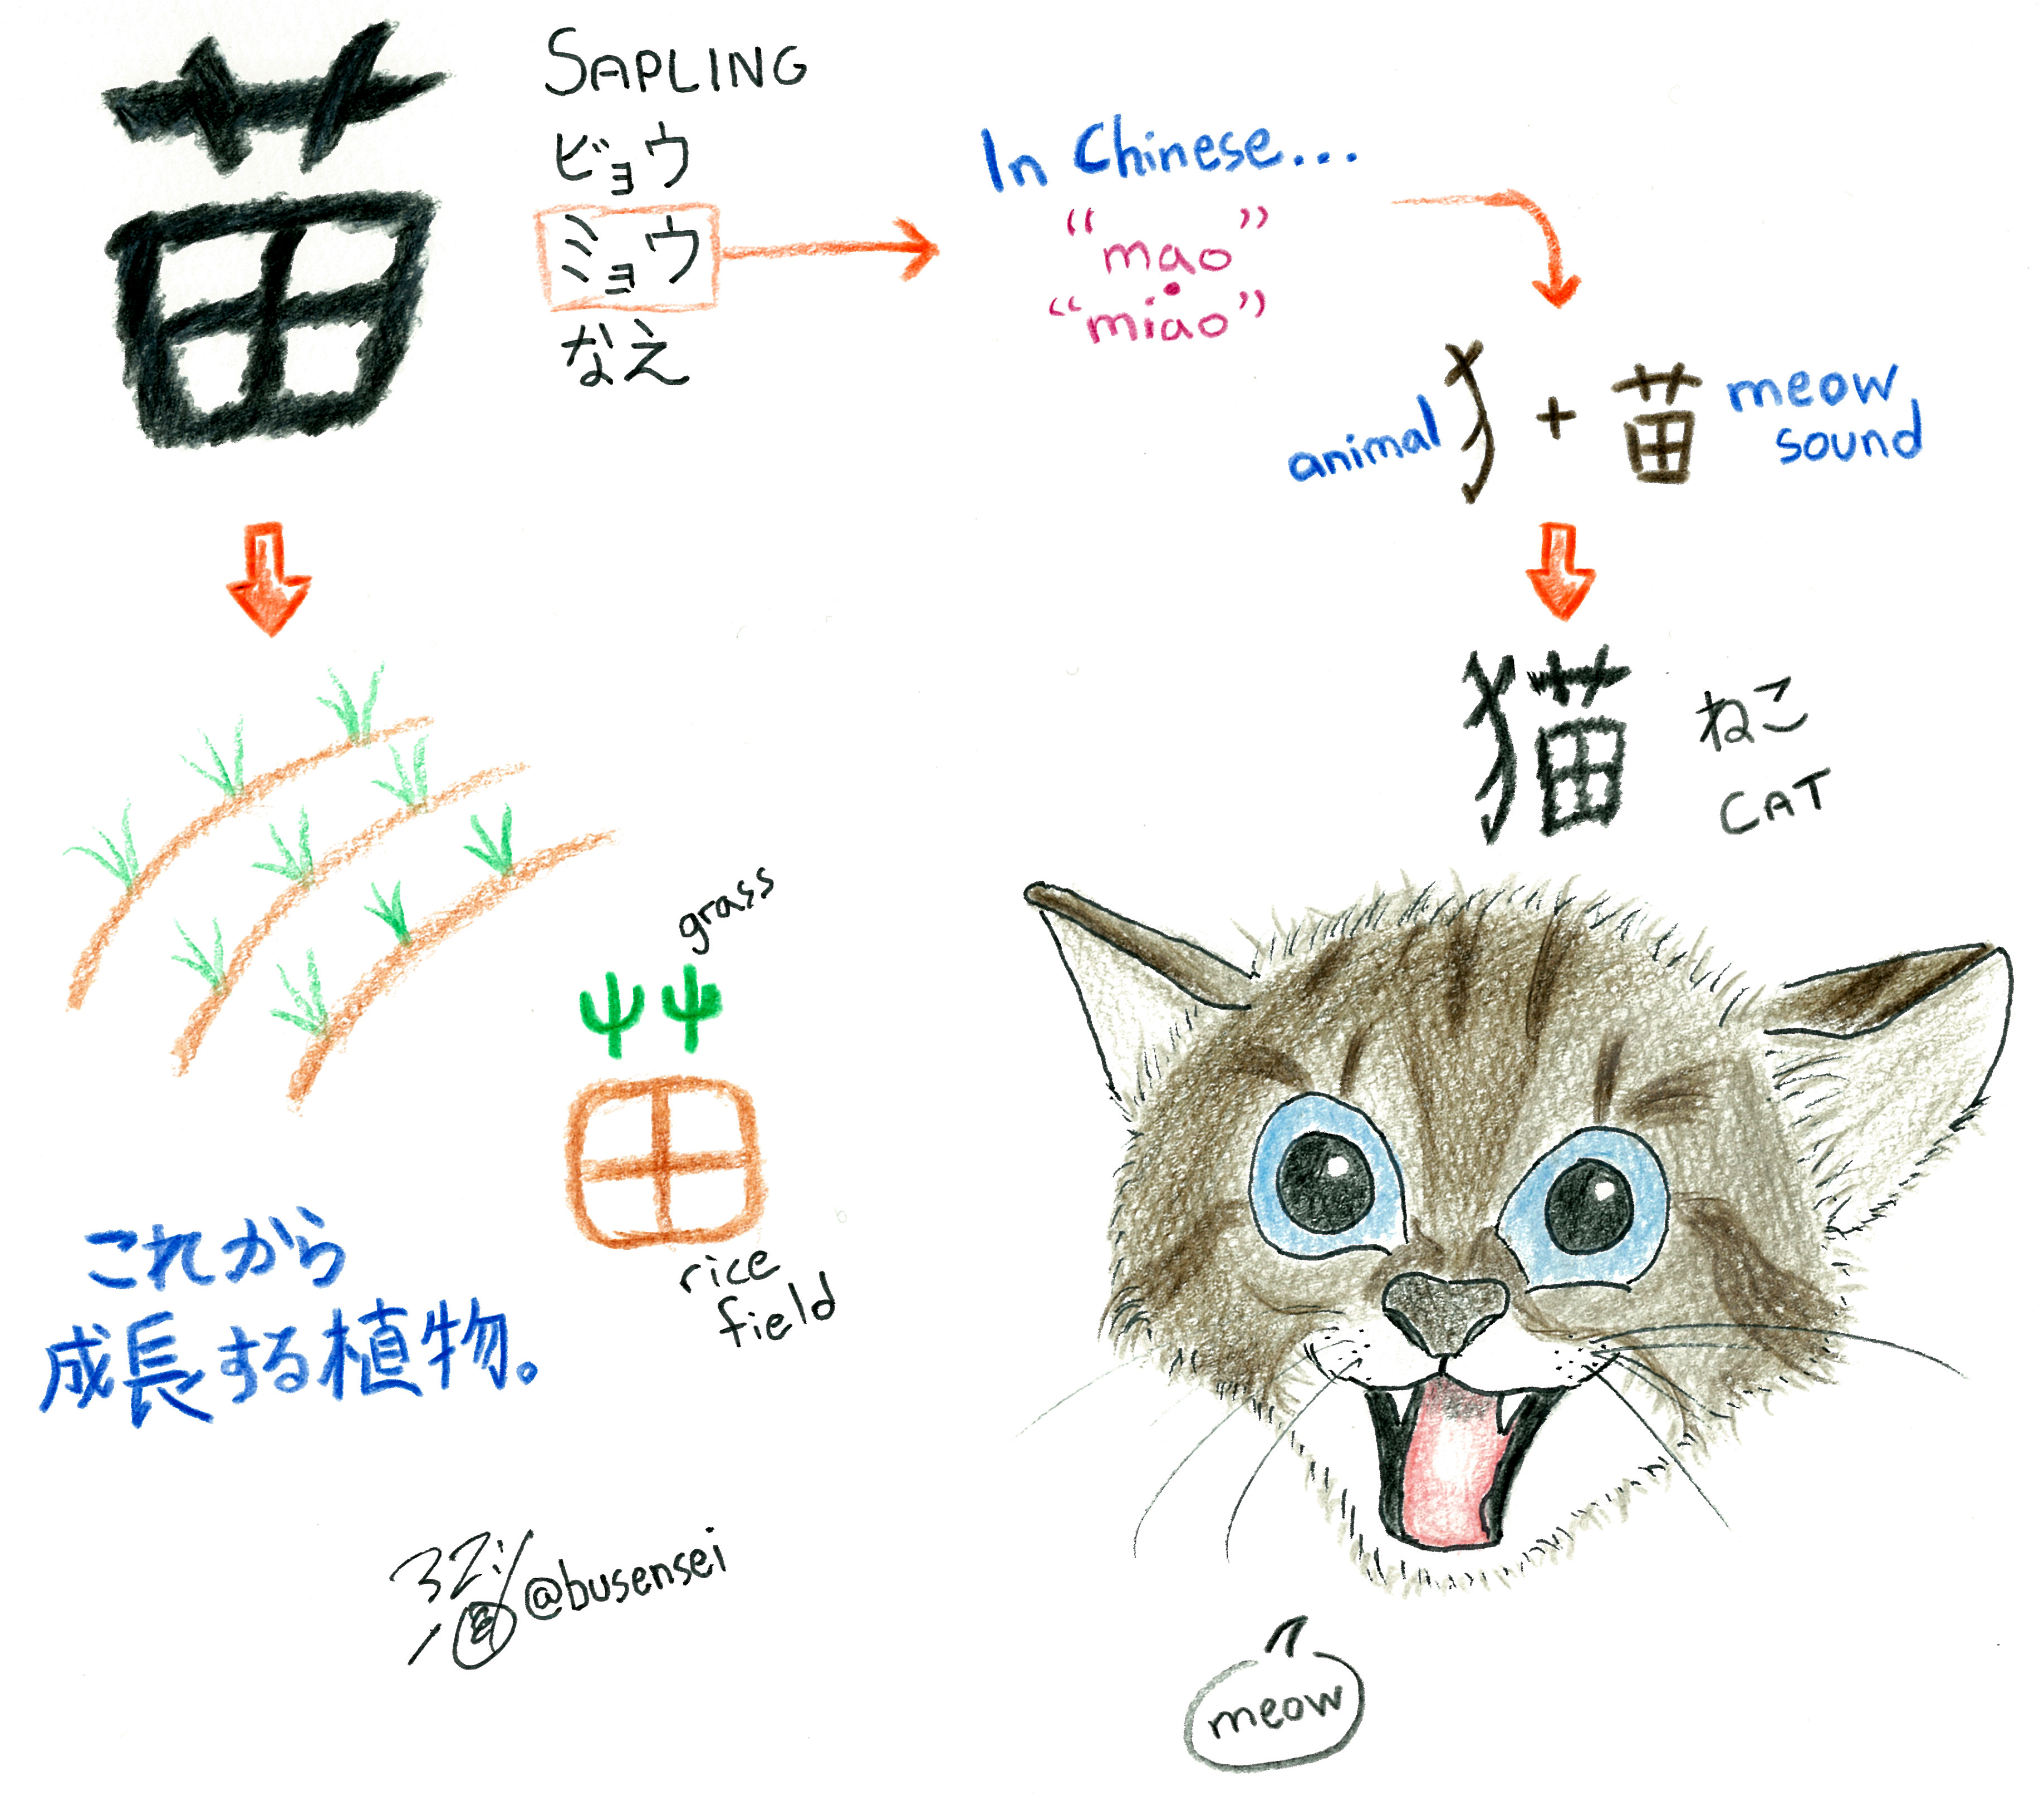 苗
SAPLING
ビョウ
ミョウ
なえ
In Chinese...
“mao”
“miao”
animal 犭 + 苗 meow
sound
猫
ねこ
CAT
grass
田
rice
field
これから
成長する植物。
@busensei
meow